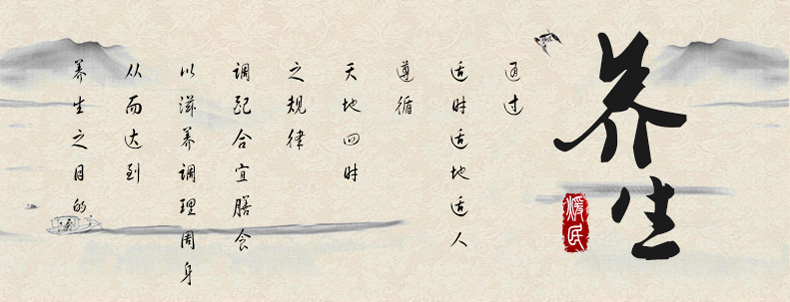 养生
通过
适时适地适人
遵循
天地四时
之规律
调配合宜膳食
以滋养调理周身
从而达到
养生之目的